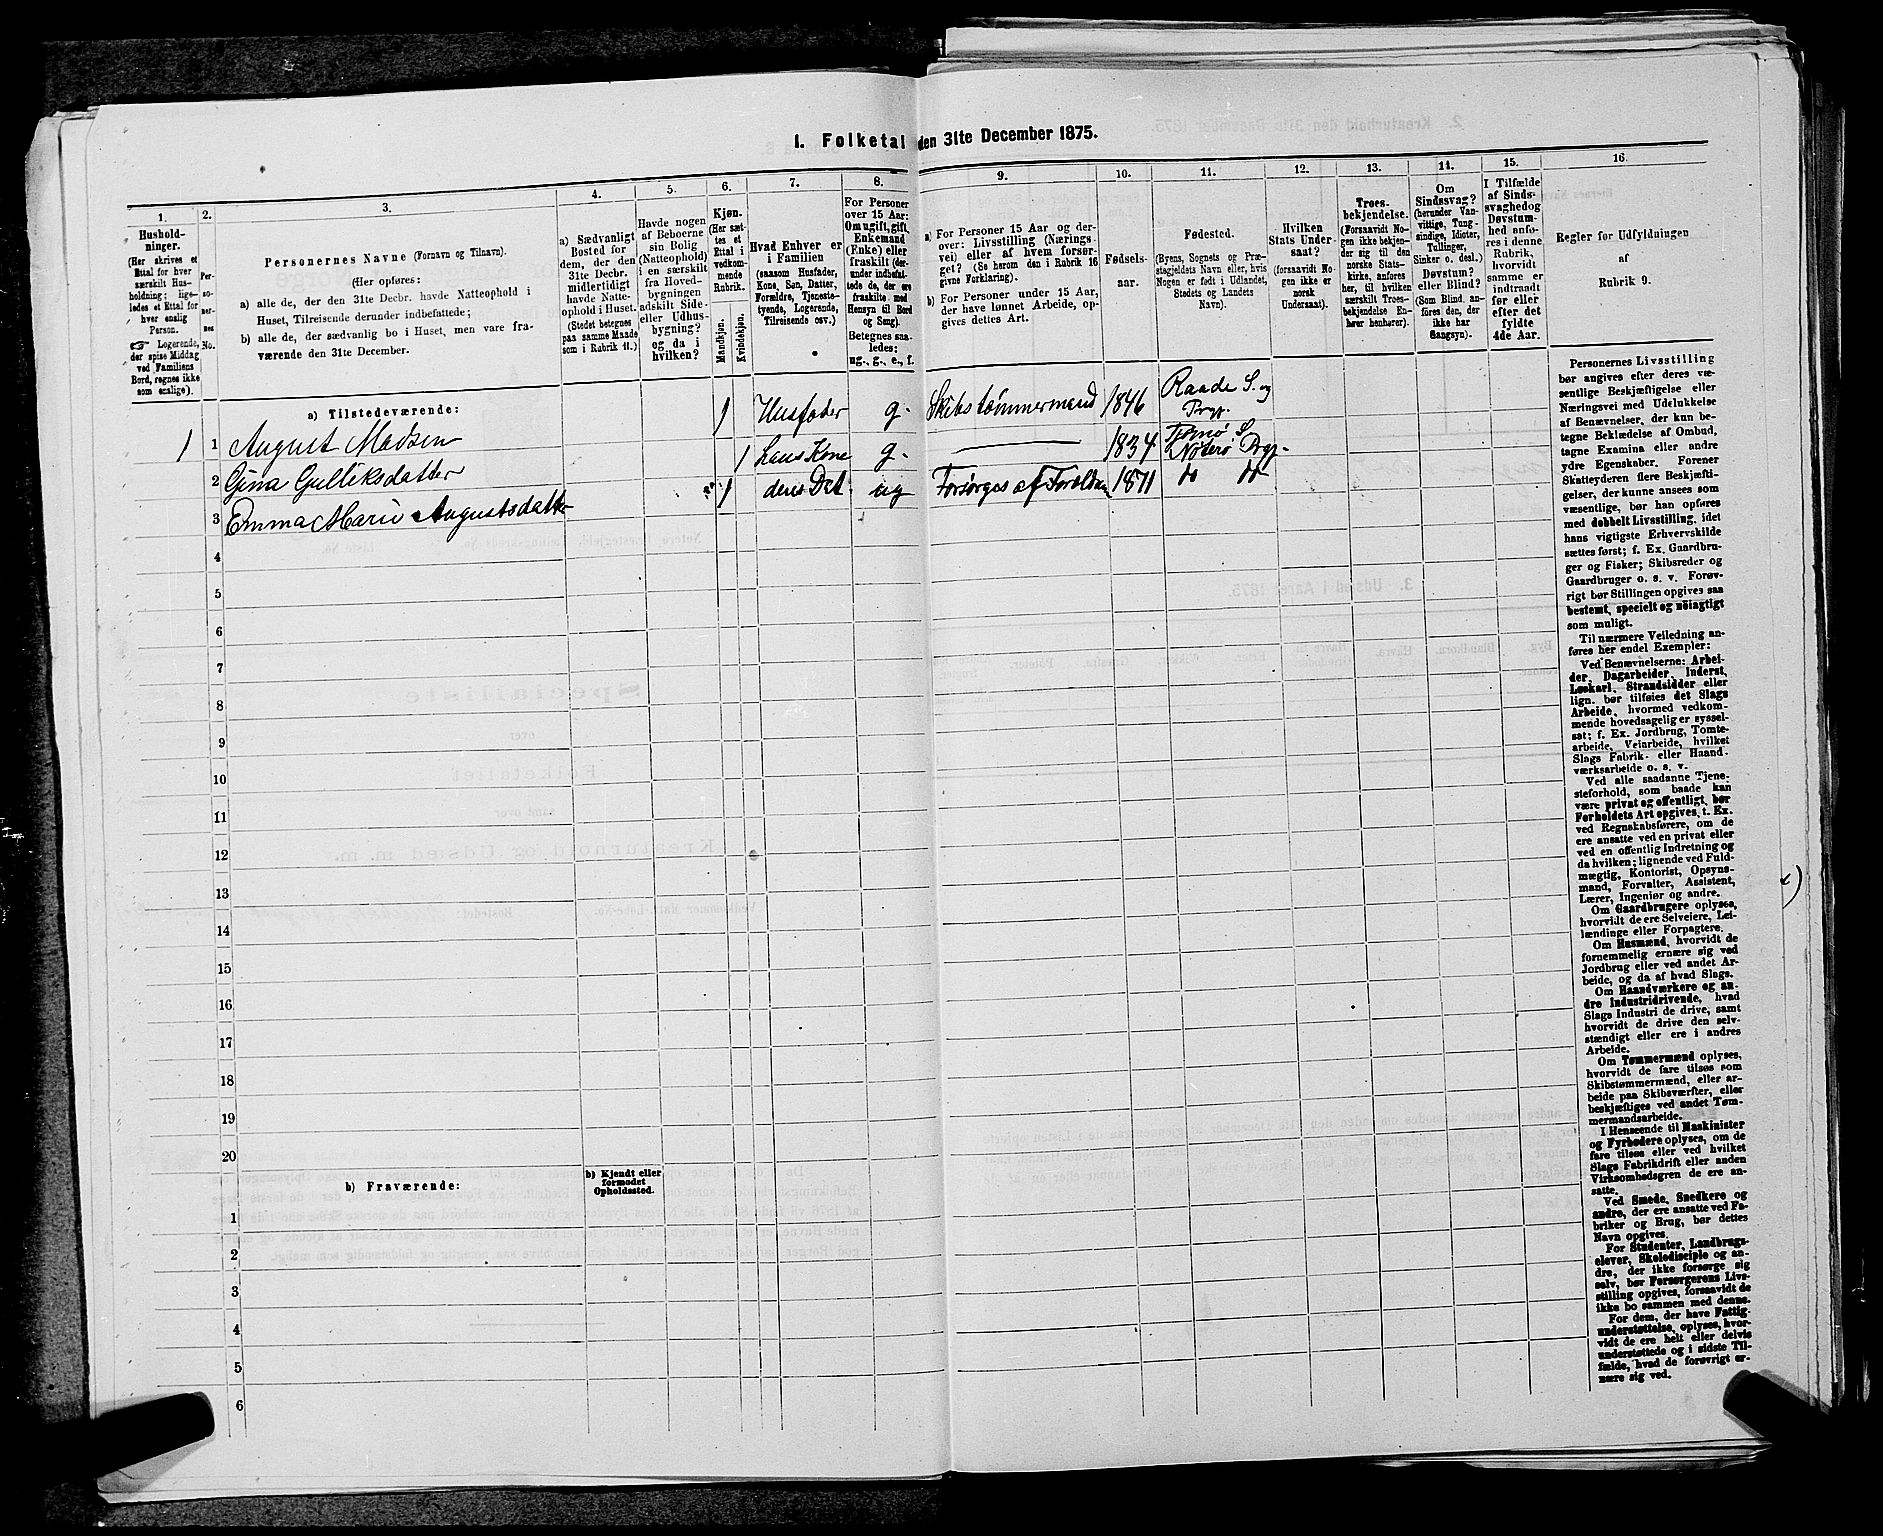 1. Folketal den 31te December 1875.
1.
2.
3.
4.
5.
6.
7.
8.
9.
10.
11.
12.
13.
14.
15.
16.
Hushold-
ninger.
(Her skrives et
Ettal for hver
særskilt Hus-
holdning; lige-
ledes et Ettal for
hver enslig
Person.
☞ Logerende,
der spise Middag
ved Familiens
Bord, regnes ikke
som enslige).
Per-
so-
ner-
nes
No.
Personernes Navne (Fornavn og Tilnavn).
(Her opføres:
a) alle de, der den 31te Decbr. havde Natteophold i
Huset, Tilreisende derunder indbefattede;
b) alle de, der sædvanlig bo i Huset, men vare fra-
værende den 31te December.
a) Sædvanligt
Bosted for
dem, der den
31te Decbr.
midlertidigt
havde Natte-
ophold i Huset.
(Stedet betegnes
paa samme Maade
som i Rubrik 11.)
Havde nogen
af Beboerne
sin Bolig
(Natteophold)
i en særskilt
fra Hoved-
bygningen
adskilt Side-
eller Udhus-
bygning?
og da i
hvilken?
Kjøn.
(Her sæt-
tes et
Ettal i
vedkom-
mende
Rubrik.
Mandkjøn.
Kvindekjøn.
Hvad Enhver er
i Familien
(saasom Husfader,
Kone, Søn, Datter,
Forældre, Tjeneste-
tyende, Logerende,
Tilreisende osv.)
For Personer
over 15 Aar:
Om ugift, gift,
Enkemand
(Enke) eller
fraskilt (der-
under indbefat-
tede de, der ere
fraskilte med
Hensyn til Bord
og Seng).
Betegnes saa-
ledes:
ug., g., e., f.
a) For Personer 15 Aar og der-
over: Livsstilling (Nærings-
vei) eller af hvem forsør-
get? (Se herom den i Rubrik 16
givne Forklaring).
b) For Personer under 15 Aar,
der have lønnet Arbeide, op-
gives dettes Art.
Fødsels-
aar.
Fødested.
(Byens, Sognets og Præ-
stegjeldets Navn eller, hvis
Nogen er født i Udlandet,
Stedets og Landets
Navn).
Hvilken
Stats Under-
saat?
(forsaavidt No-
gen ikke er
norsk
Undersaat).
Troes-
bekjendelse.
(Forsaavidt No-
gen ikke bekjen-
der sig til den
norske Stats-
kirke, anføres
her, til hvilken
særskilt Troes-
bekjendelse En-
hver henhører).
Om
Sindssvag?
(herunder Van-
vittige, Tung-
sindige, Idioter,
Tullinger,
Sinker o. desl.)
Døvstum?
eller Blind?
(Som Blind, an-
føres den, der
ikke har
Gangsyn).
I Tilfælde
af Sinds-
svaghed og
Døvstum-
hed anfø-
res i denne
Rubrik,
hvorvidt
samme er
indtraadt
før eller
efter det
fyldte
4de Aar.
Regler for Udfyldningen
af
Rubrik 9.
a) Tilstedeværende:
1 1 August Madsen 1 Husfader g. Skibstømmermand 1846 Raade S. og Prgj.
2 Gina Gulliksdatter 1 hans Kone g. — 1834 Tjømø S. Nøterø Prgj.
3 Emma Marie Augustsdatter 1 deres Dat. ug Forsørges af Foreldre 1871
4
5
6
7
8
9
10
11
12
13
14
15
16
17
18
19
20
b) Fraværende:
b) Kjendt eller
formodet
Opholdssted.
1
2
3
4
5
6
Personernes Livsstilling
bør angives efter deres væ-
sentlige Beskjæftigelse eller
Næringsvei med Udelukkelse
af Benævnelser, der kun be-
tegne Beklædelse af Ombud,
tagne Examina eller andre
ydre Egenskaber. Forener
Skatteyderen flere Beskjæfti-
gelser, der kunne ansees som
væsentlige, bør han opføres
med dobbelt Livsstilling, idet
hans vigtigste Erhvervskilde
sættes først; f. Ex. Gaardbru-
ger og Fisker; Skibsreder og
Gaardbruger o. s. v. Forøv-
rigt bør Stillingen opgives saa
bestemt, specielt og nøiagtigt
som muligt.
Til nærmere Veiledning an-
føres her endel Exempler:
Ved Benævnelserne: Arbei-
der, Dagarbeider, Inderst,
Løskarl, Strandsidder eller
lign. bør tilføies det Slags
Arbeide, hvormed vedkom-
mende hovedsagelig er syssel-
sat; f. Ex. Jordbrug, Tomte-
arbeide, Veiarbeide, hvilket
Slags Fabrik- eller Haand-
værksarbeide o. s. v.
Ved alle saadanne Tjene-
steforhold, som baade kan
være privat og offentligt, bør
Forholdets Art opgives, t. Ex.
ved Regnskabsførere, om de
ere ansatte ved en privat eller
ved en offentlig Indretning og
da hvilken; lignende ved Fuld-
mægtig, Kontorist, Opsyns-
mand, Forvalter, Assistent,
Lærer, Ingeniør og andre.
Om Gaardbrugere oplyses,
hvorvidt de ere Selveiere, Lei-
lændinge eller Forpagtere.
Om Husmænd, hvorvidt de
fornemmelig ernære sig ved
Jordbrug eller ved andet Ar-
beide, og da af hvad Slags.
Om Haandværkere og an-
dre Industridrivende, hvad
Slags Industri de drive, samt
hvorvidt de drive den selv-
stændigt eller ere i andres
Arbeide.
Om Tømmermænd oplyses,
hvorvidt de fare tilsøs som
Skibstømmermænd, eller ar-
beide paa Skibsværfter, eller
beskjæftiges ved andet Tøm-
mermandsarbeide.
I Henseende til Maskinister
og Fyrbødere oplyses, om de
fare tilsøs eller ved hvilket
Slags Fabrikdrift eller anden
Virksomhedsgren de ere an-
satte.
Ved Smede, Snedkere og
andre, der ere ansatte ved Fa-
briker og Brug, bør dettes
Navn opgives.
For Studenter, Landbrugs-
elever, Skoledisciple og an-
dre, der ikke forsørge sig
selv, bør Forsørgerens Livs-
stilling opgives, forsaavidt de
ikke bo sammen med denne.
For dem, der have Fattig-
understøttelse, oplyses, hvor-
vidt de ere helt eller delvis
understøttede og i sidste Til-
fælde, hvad de forøvrigt er-
nære sig ved.